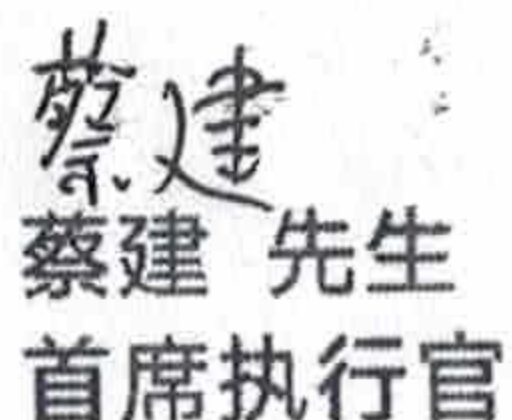 蔡建
蔡建 先生
首席执行官